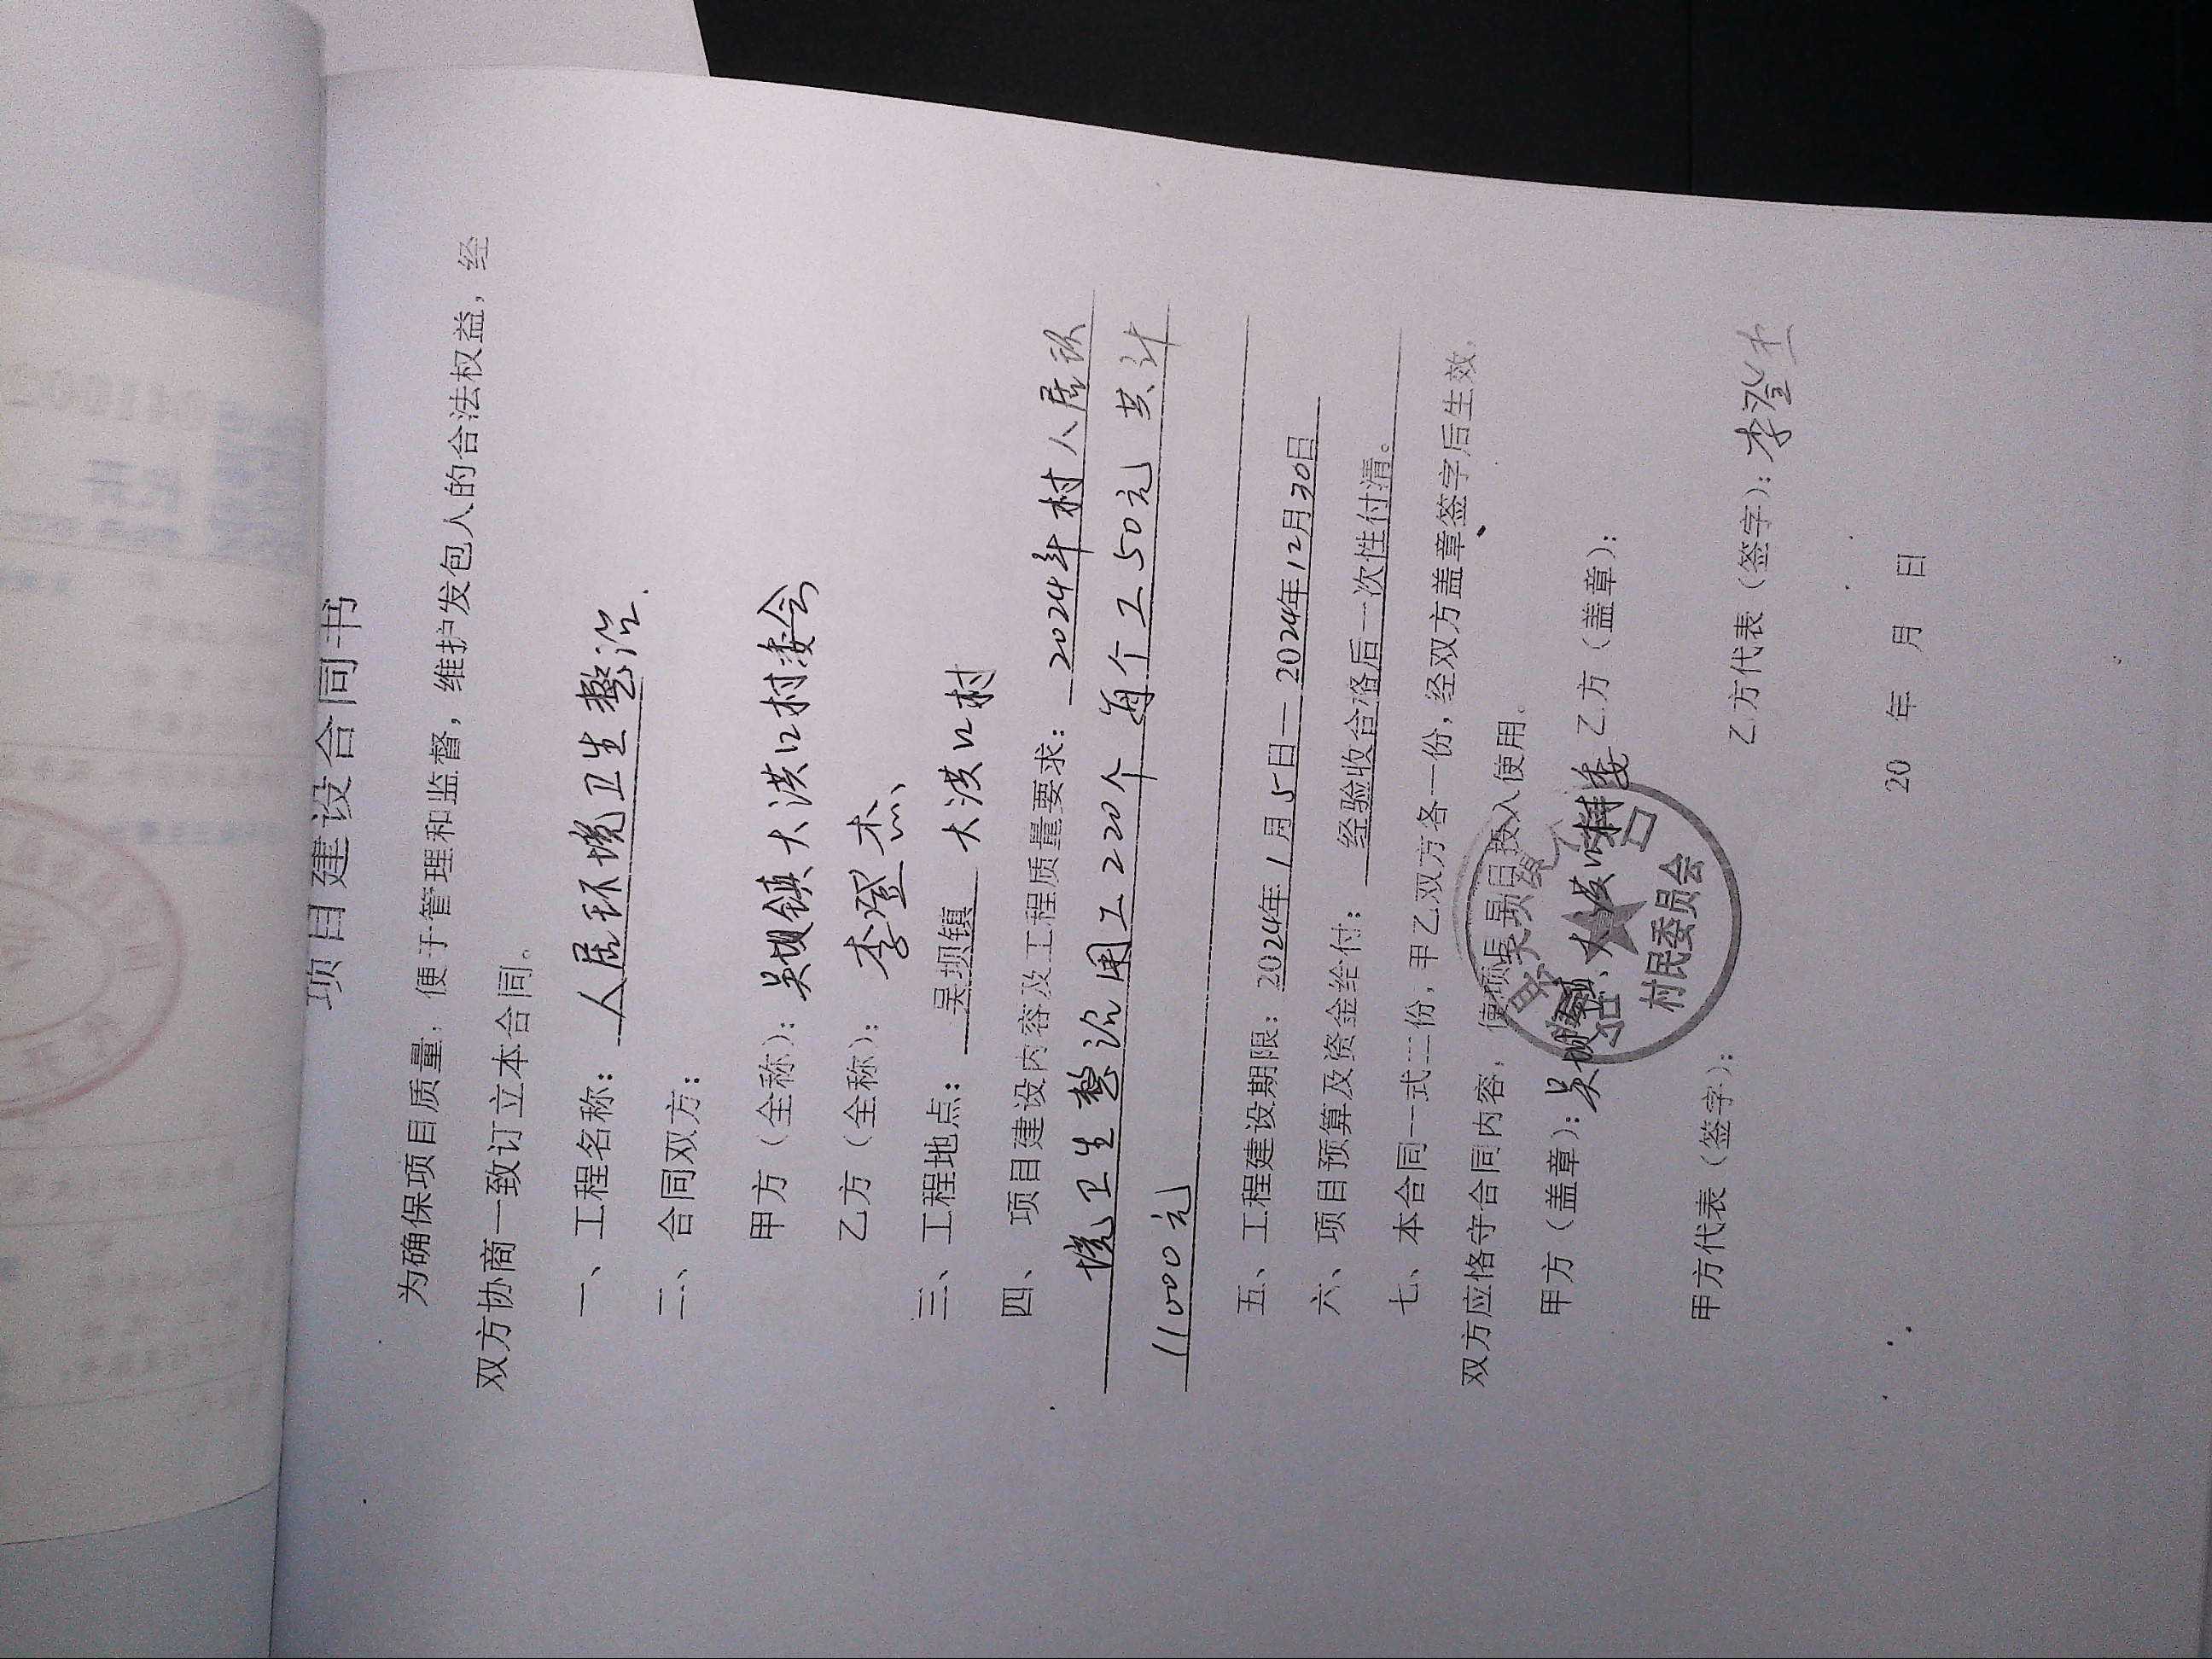 项目建设合同书
为确保项目质量，便于管理和监督，维护发包人的合法权益，经
双方协商一致订立本合同。
一、工程名称：人居环境卫生整治.
二、合同双方：
甲方（全称）：吴坝镇大洪口村委会
乙方（全称）：李登杰
三、工程地点：吴坝镇 大洪口村
四、项目建设内容及工程质量要求：2024年村人居环
境卫生整治用工220个每个工50元共计
11000元
五、工程建设期限：2024年1月5日—2024年12月30日
六、项目预算及资金给付：经验收合格后一次性付清。
七、本合同一式三份，甲乙双方各一份，经双方盖章签字后生效，
双方应恪守合同内容，使项目投入使用。
甲方（盖章）：吴坝镇大洪口村委 乙方（盖章）：
村民委员会
甲方代表（签字）： 乙方代表（签字）：李登
20 年 月 日